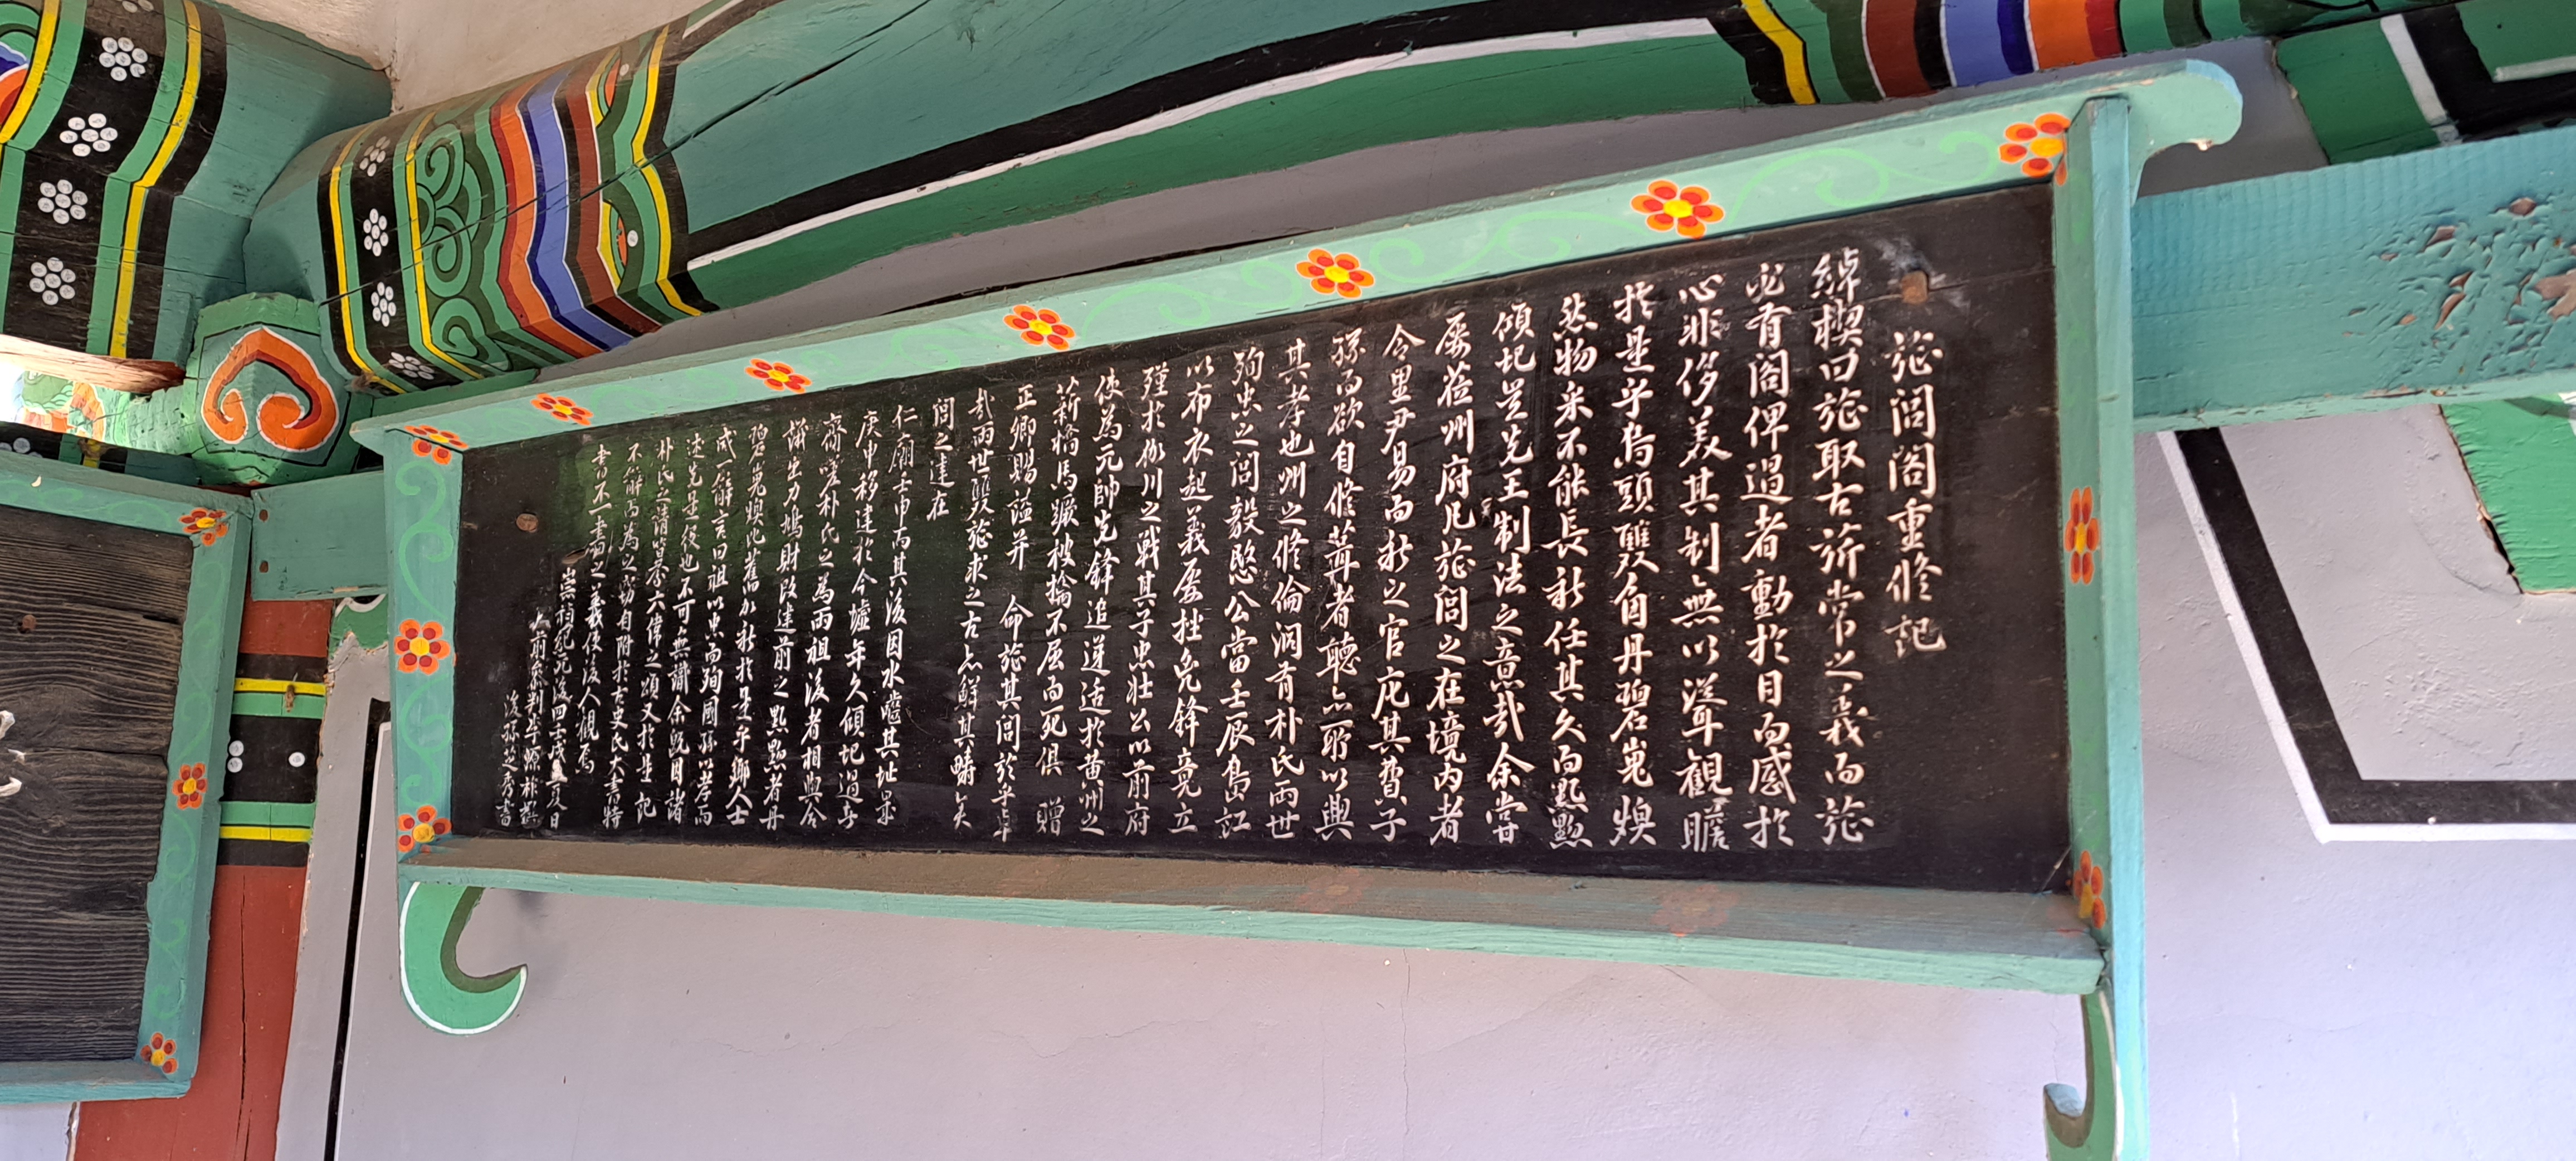 旌閭閣重修記
綽楔曰旌取古旂常之義而旌
必有閣俾過者動於目而感於
心非侈美其制無以聳觀瞻
於是乎烏頭雙角丹碧嵬煥
然物采不能長新任其久而點黝
傾圮豈先王制法之意哉余嘗
屢莅州府凡旌閭之在境內者
令里尹易而新之官庀其費子
孫而欲自修葺者聽亦所以興
其孝也州之修倫洞有朴氏兩世
殉忠之閭毅愍公當壬辰島訌
以布衣起義屢挫兇鋒竟立
殣於 川之戰其子忠壯公以前府
使為元帥先鋒追逆适於黄州之
薪橋馬蹶被擒不屈而死俱 贈
正卿賜諡并 命旌其閭於乎卓
哉兩世雙旌求之古亦鮮其疇矣
閭之建在
仁廟壬申而其後因水齧其址累
庚申移建於今墟年久傾圮過者
齎嗟朴氏之為兩祖後者相與合
議出力鳩財改建前之點黝者丹
碧嵬煥此舊加新於是乎鄉人士
咸一辭言曰祖以忠而殉國孫以孝而
述先是一役也不可無識余旣因諸
朴氏之請畧 六偉之頌又於是記
不能 而為之 自附於古史氏大書特
書不一書之義使後人觀焉
崇禎紀元後四壬戌 夏日
前參判 原朴
後孫芝秀書